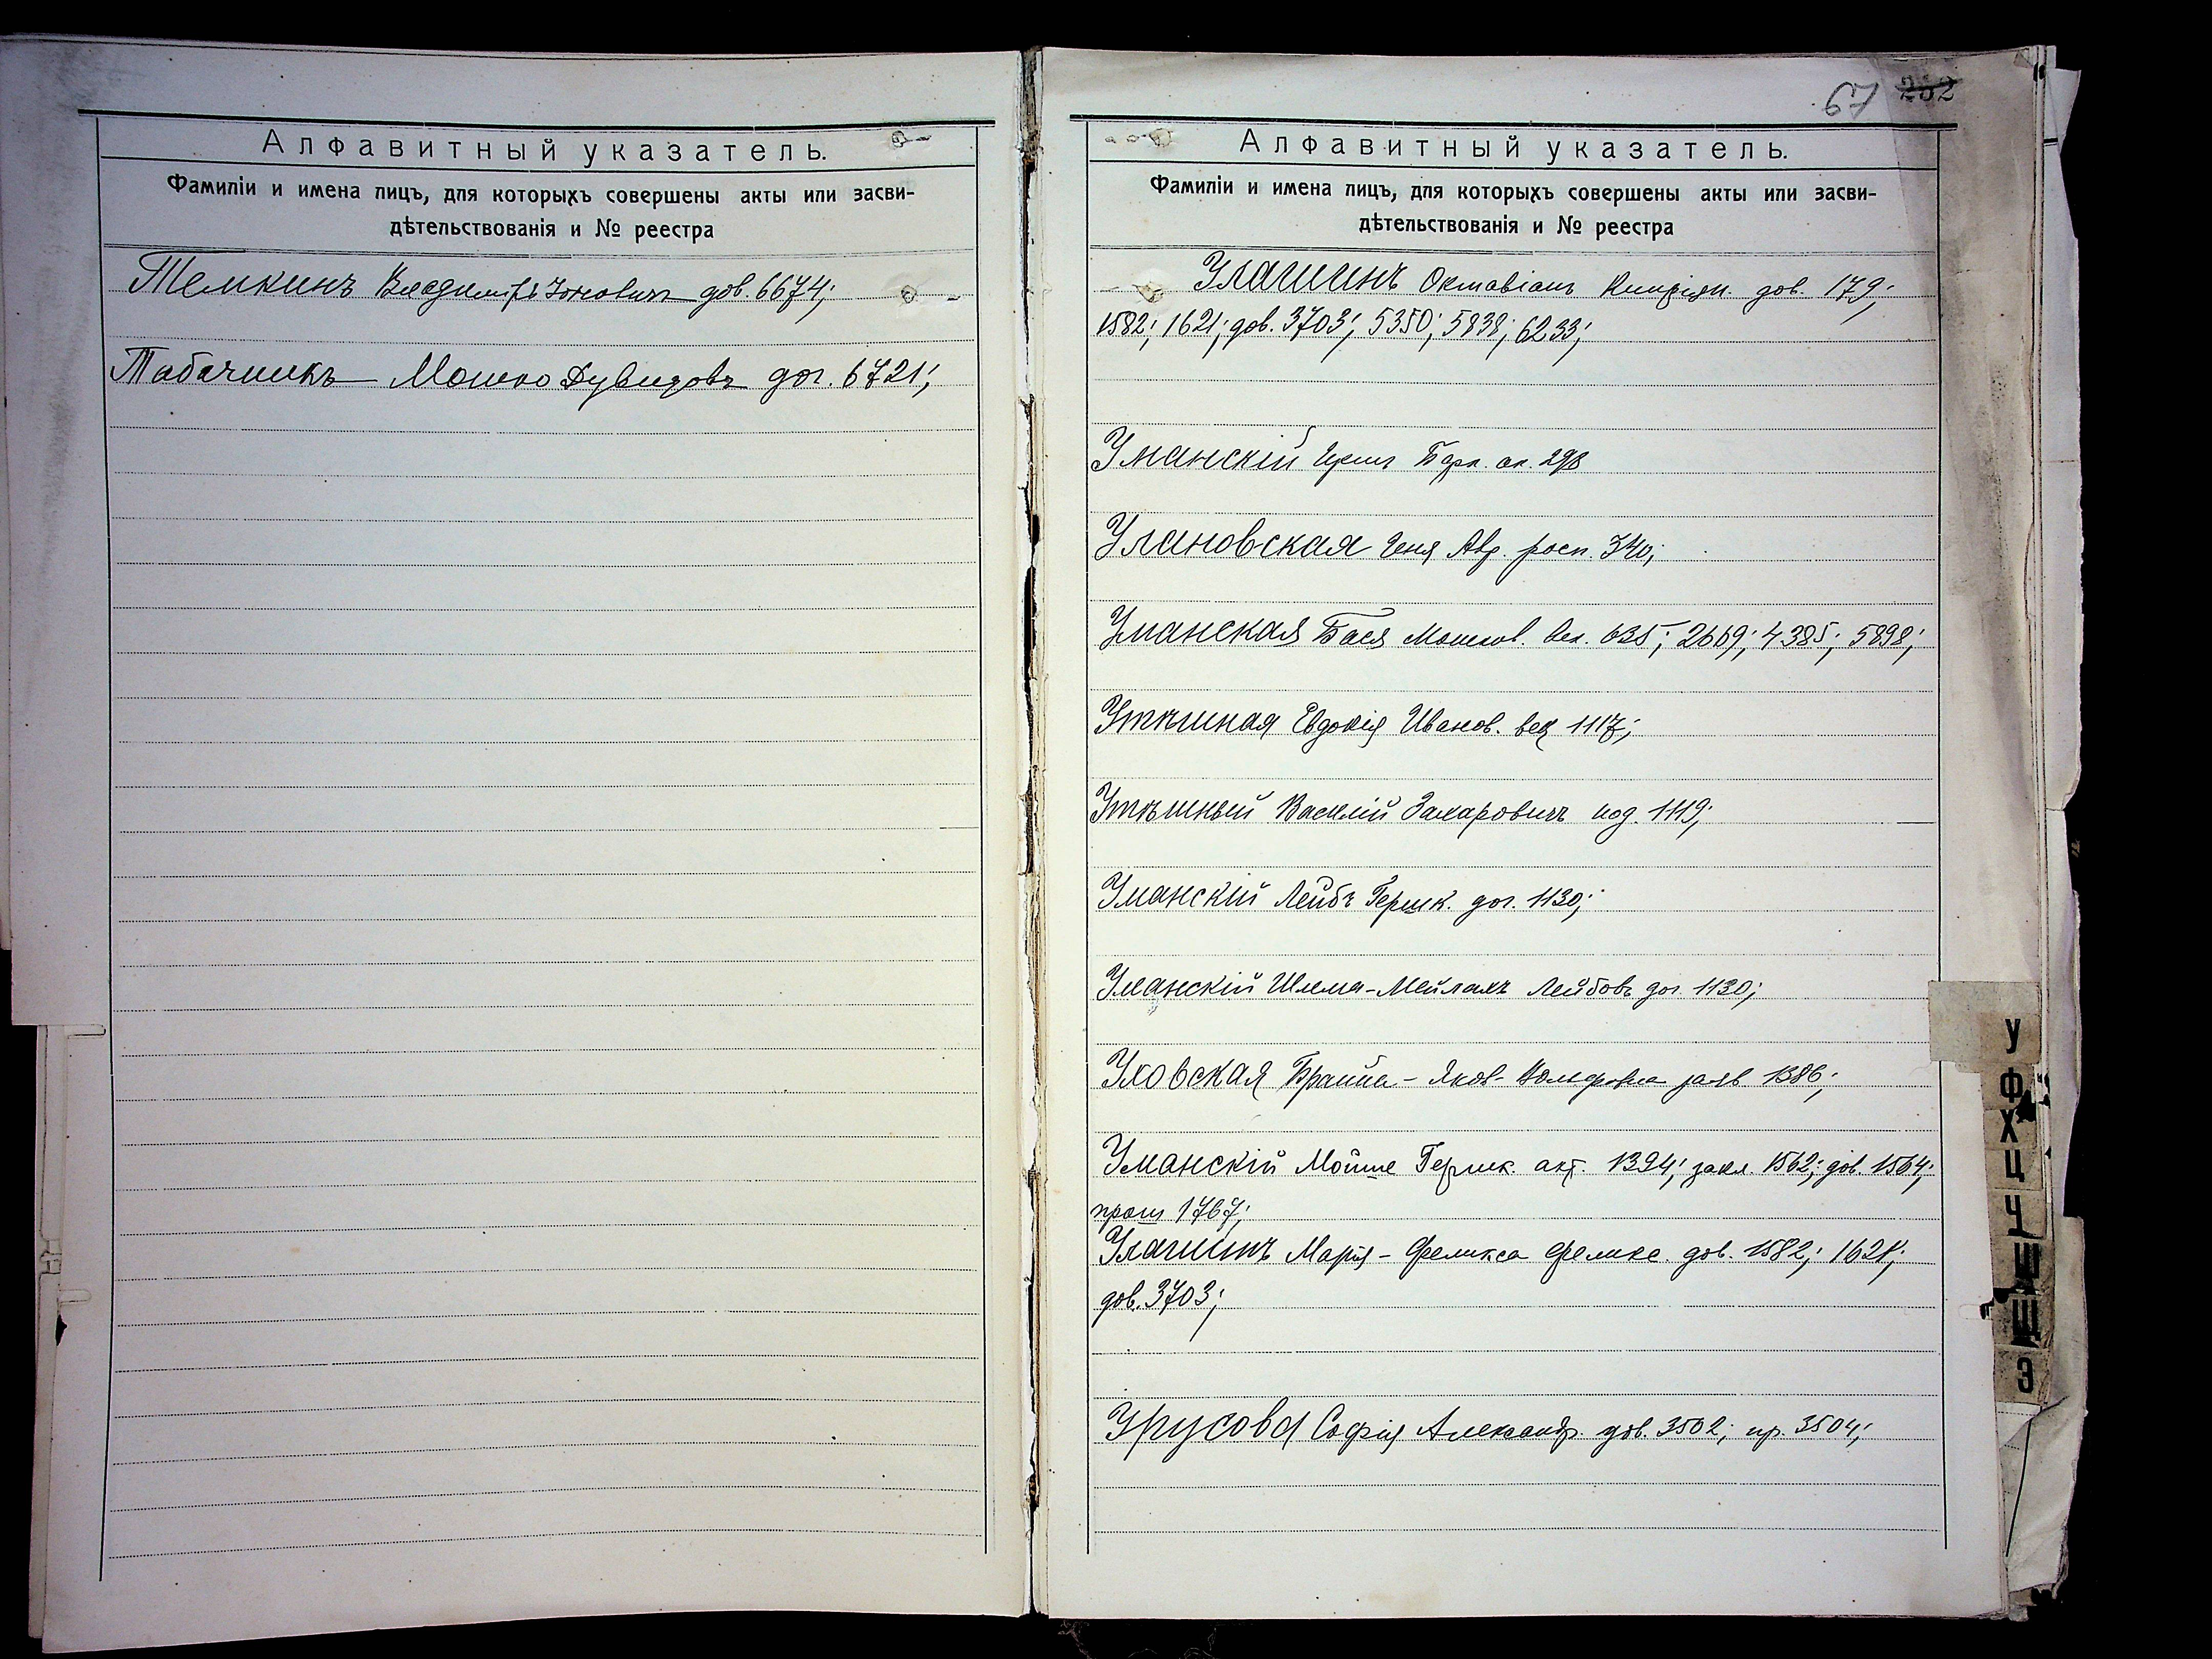 Алфавитный указатель.
Фамиліи и имена лицъ, для которыхъ совершены акты или засви-
дѣтельствованія и № реестра
Темкинъ Владиміръ дов. 6674;
Табачникъ Мошко Дувидовъ дог. 6721;
67 252
Алфавитный указатель.
Фамиліи и имена лицъ, для которыхъ совершены акты или засви-
дѣтельствованія и № реестра
Улашинъ Октавіанъ дов. 179;
1582; 1621; дов. 3703; 5350; 5838; 6233;
Уманскій Берк. 298
Улановская Геня Авр. росп. 340;
Уманская Бася Мошков. век. 635; 2669; 4385; 5898;
Утѣшная Евдокія Иванов. век 1117;
Утѣшный Василій Захаровичъ 1119;
Уманскій Лейбъ Гершк. дог. 1130;
Уманскій Шлема-Мейлахъ Лейбовъ дог. 1130;
Уховская Брайна- Вольфовна 1386;
Уманскій Мойше Гершк. акт. 1394; закл. 1562; дов. 1564;
1767;
Улашинъ Марія-Феликса Феликс. дов. 1582; 1621;
дов. 3703;
Урусова Софія Александр. дов. 3502; пр. 3504;
У
Ф
Х
Ц
Ч
Ш
Щ
Э